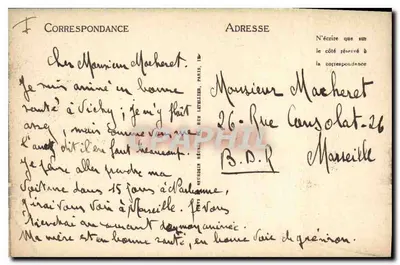 I
CORRESPONDANCE
ADRESSE
N'écrire que sur
le côté réservé à
la correspondance
Cher Monsieur Macheret.
Je suis arrivé en bonne
santé à Vichy; je m'y plait
assez, mais comme
l'auf dit il en faut neuf.
Je pense aller prendre ma
voiture dans 15 jours à Narbonne,
J'irai vous voir à Marseille. Je vous
tiendrai au courant de mon arrivée.
Ma mère est en bonne santé, en bonne voie de guérison.
Monsieur Macheret
26 - Rue Consolat - 26
Marseille
B.D.R